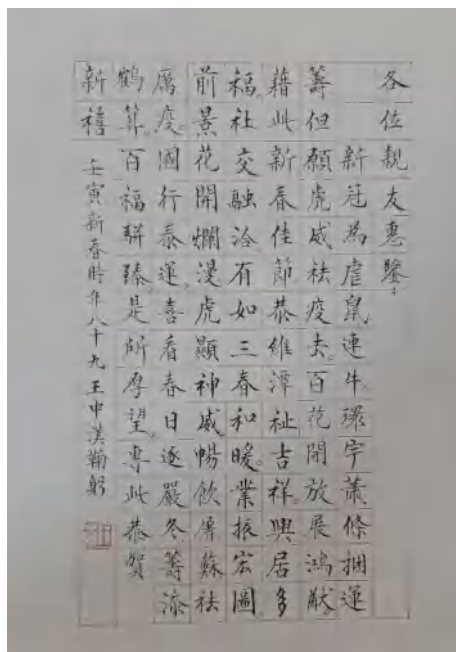 各位親友惠鑒:
新冠為虐鼠連牛。環宇蕭條捆運
籌但願虎威祛疫去。百花開放展鴻猷。
藉此新春佳節恭維潭祉吉祥。興居多
福。社交融洽有如三春和暖。業振宏圖。
前景花開爛漫虎顯神威暢飲屠蘇祛
厲疫。國行泰運。喜看春日逐嚴冬籌添
鶴算。百福駢臻是所厚望。專此恭賀
新禧 壬寅新春時年八十九王中漢鞠躬